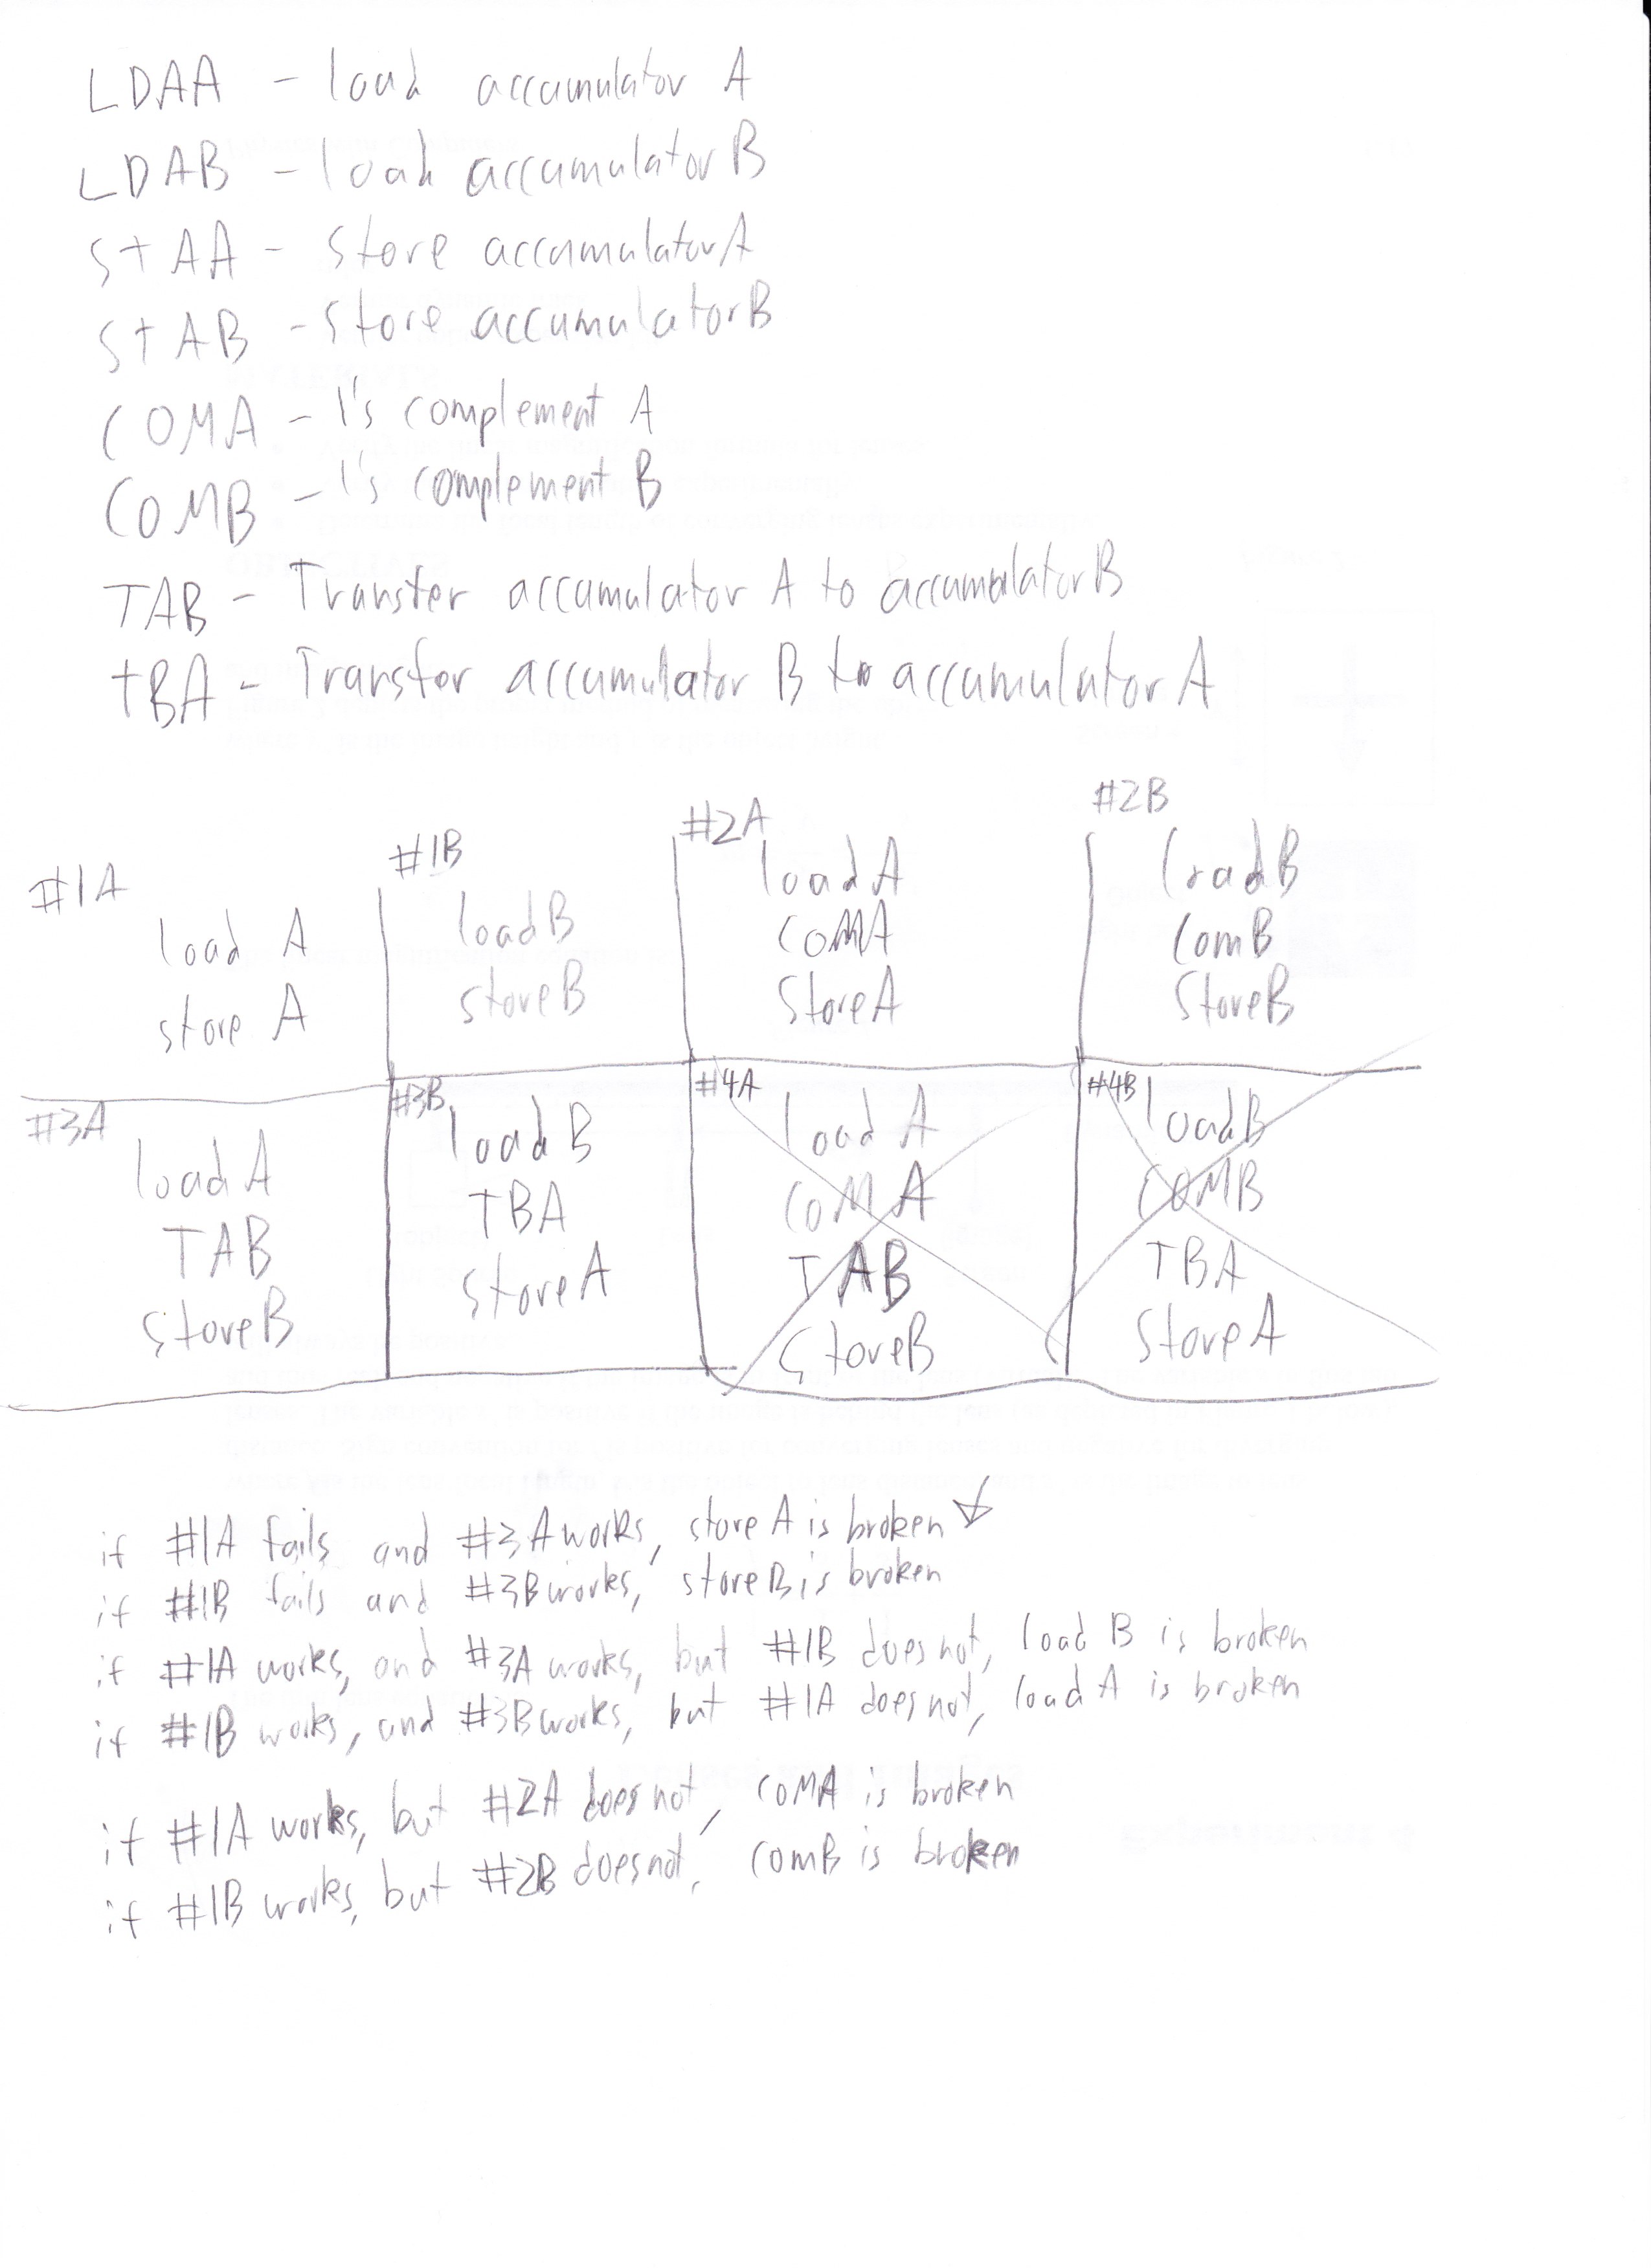 LDAA - load accumulator A
LDAB - load accumulator B
STAA - store accumulator A
STAB - store accumulator B
COMA - 1's complement A
COMB - 1's complement B
TAB - Transfer accumulator A to accumulator B
TBA - Transfer accumulator B to accumulator A
#1A
load A
store A
#1B
load B
store B
#2A
load A
COMA
Store A
#2B
load B
ComB
Store B
#3A
load A
TAB
Store B
#3B
load B
TBA
store A
#4A
load A
COMA
TAB
Store B
#4B
load B
COMB
TBA
Store A
if #1A fails and #3A works, store A is broken
if #1B fails and #3B works, store B is broken
if #1A works, and #3A works, but #1B does not, load B is broken
if #1B works, and #3B works, but #1A does not, load A is broken
if #1A works, but #2A does not, COMA is broken
if #1B works, but #2B does not, ComB is broken